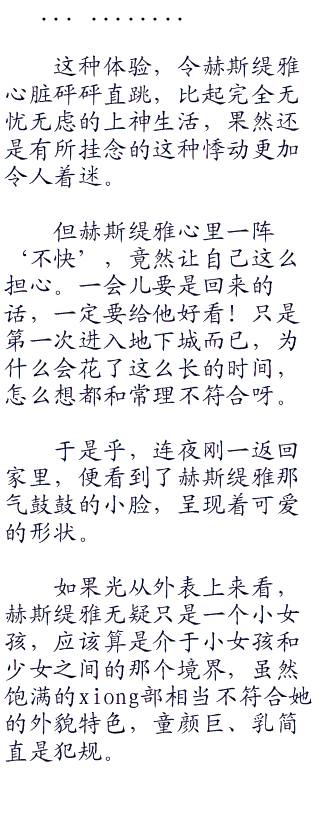 ... ........
这种体验，令赫斯缇雅
心脏砰砰直跳，比起完全无
忧无虑的上神生活，果然还
是有所挂念的这种悸动更加
令人着迷。
但赫斯缇雅心里一阵
‘不快’，竟然让自己这么
担心。一会儿要是回来的
话，一定要给他好看！只是
第一次进入地下城而已，为
什么会花了这么长的时间，
怎么想都和常理不符合呀。
于是乎，连夜刚一返回
家里，便看到了赫斯缇雅那
气鼓鼓的小脸，呈现着可爱
的形状。
如果光从外表上来看，
赫斯缇雅无疑只是一个小女
孩，应该算是介于小女孩和
少女之间的那个境界，虽然
饱满的xiong部相当不符合她
的外貌特色，童颜巨、乳简
直是犯规。